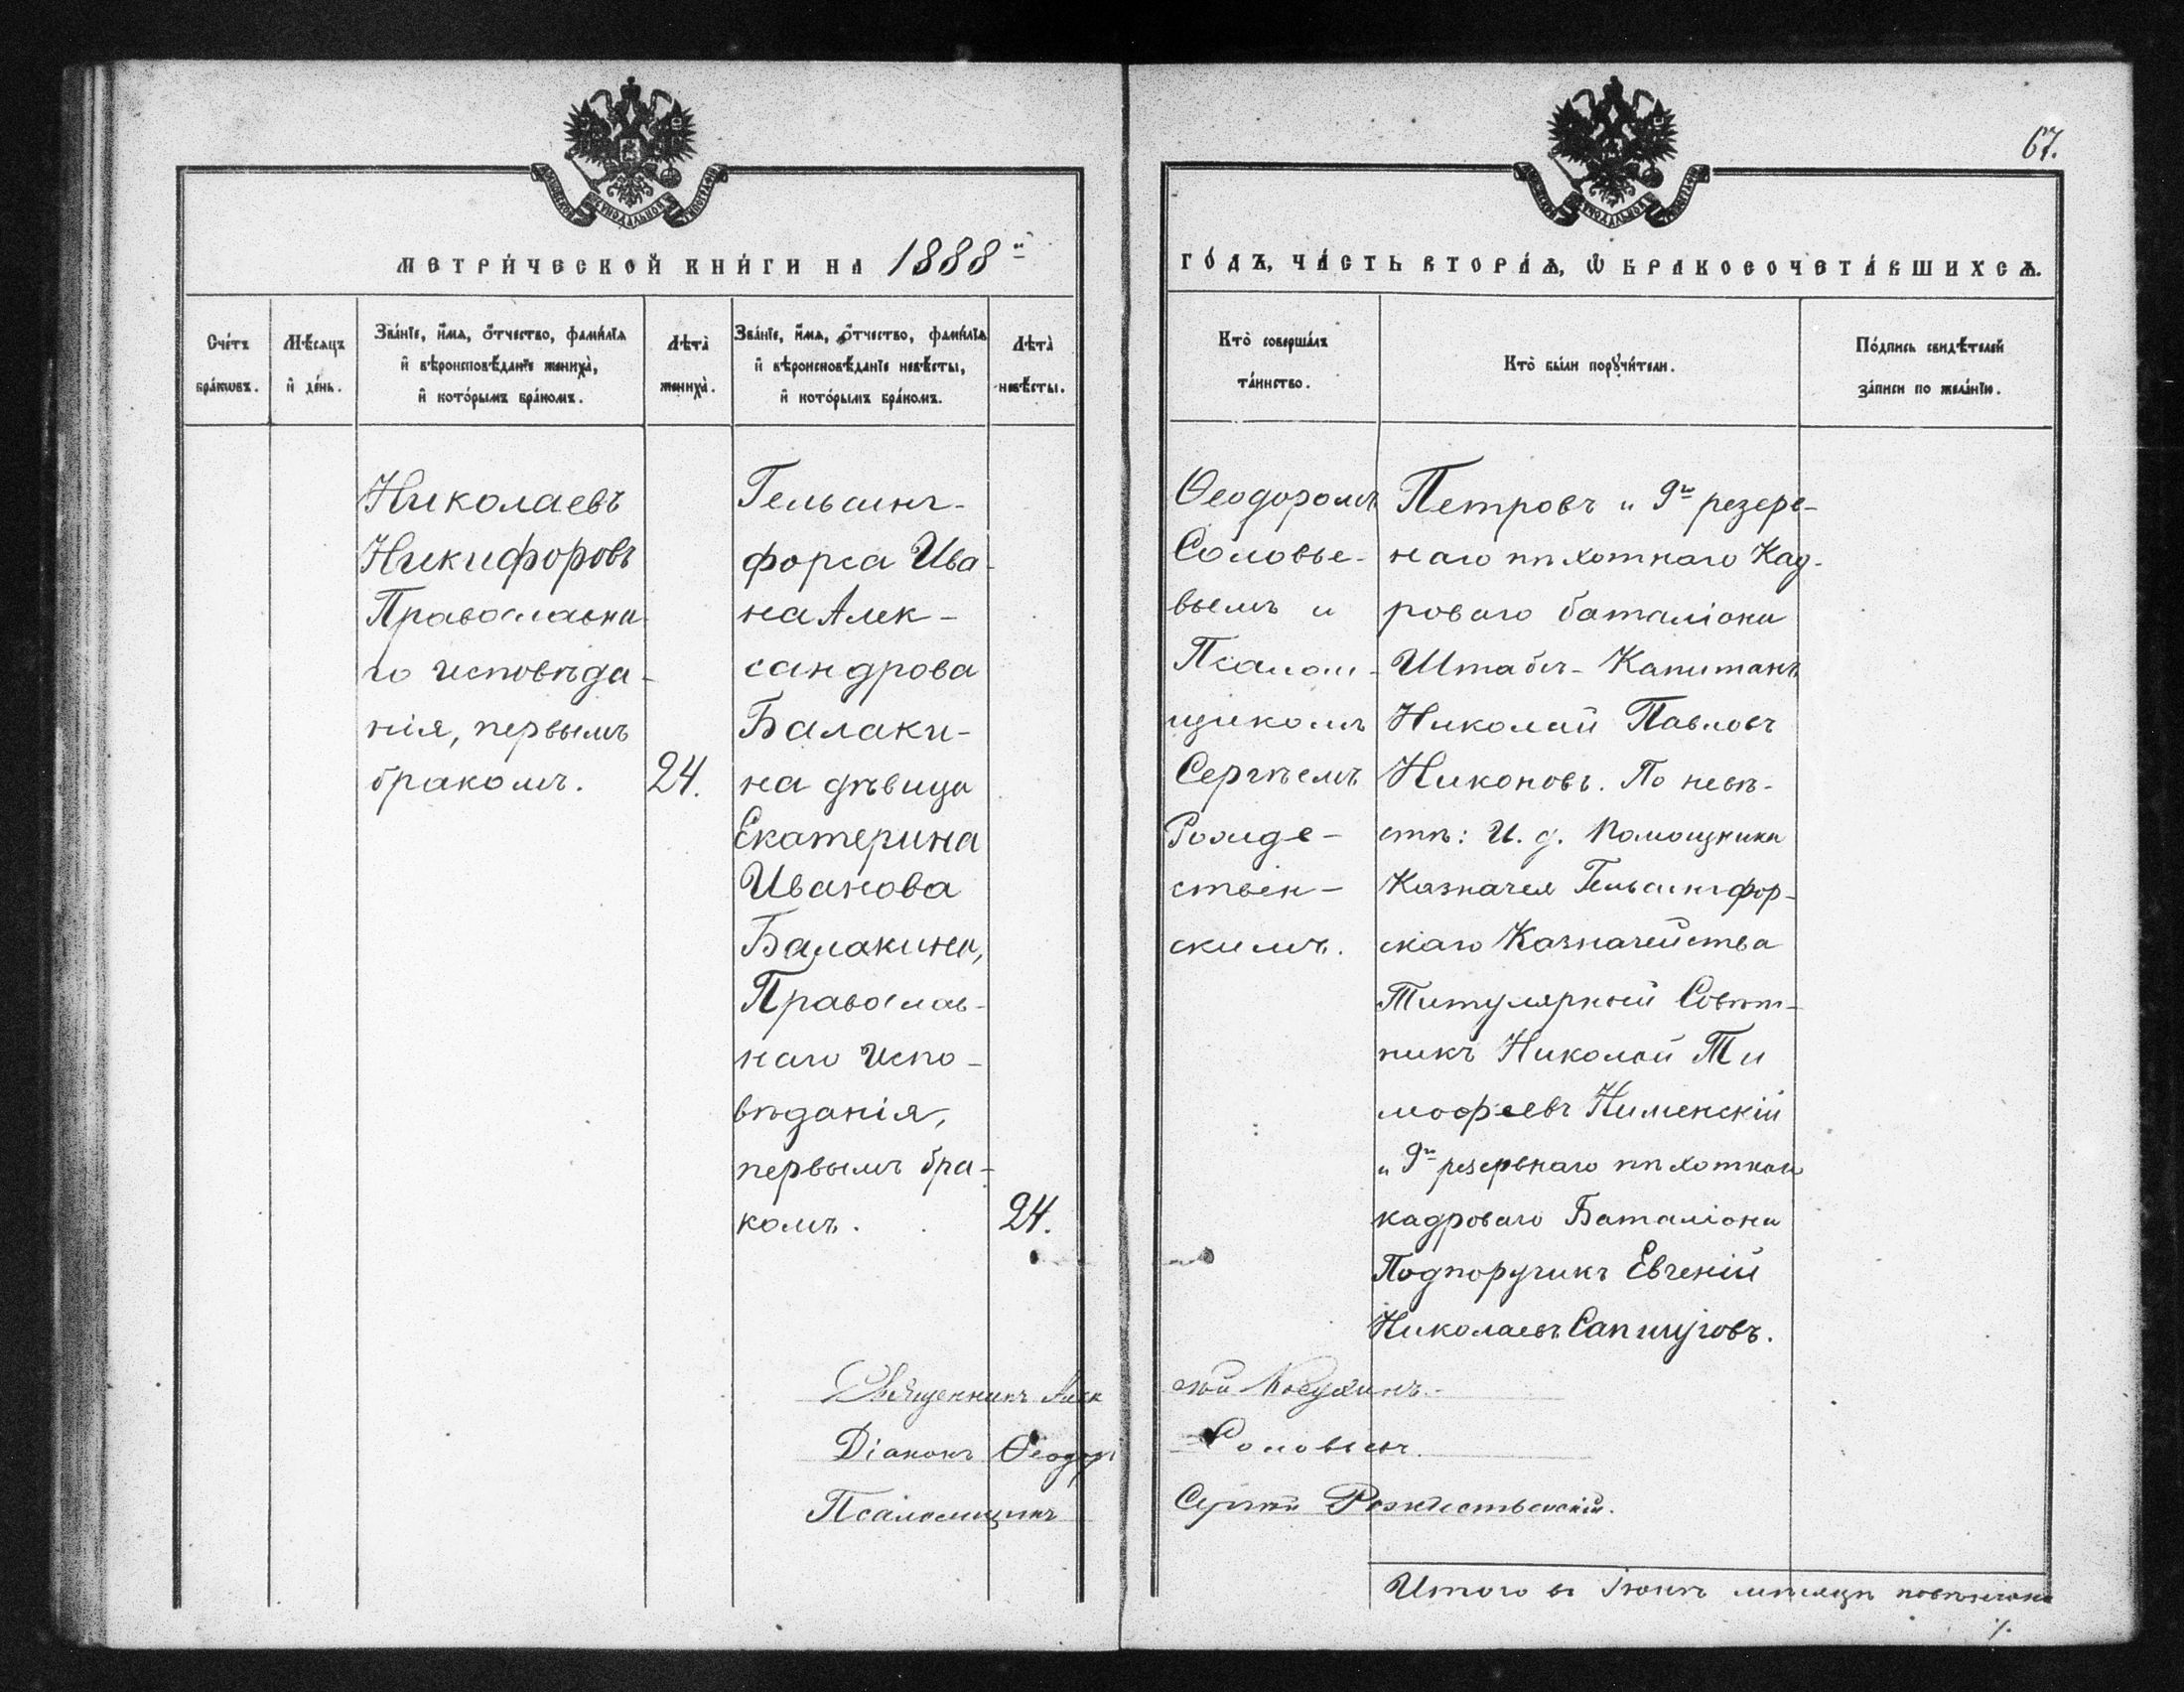 67.
МЕТРИ́ЧЕСКОЙ КНИ́ГИ НА 1888й
ГО́ДЪ, ЧА́СТЬ ВТОРА́Ѧ, Ѡ БРАКОСОЧЕТА́ВШИХСѦ.
Сче́тъ
бра́кωвъ.
Мѣ́сяцъ
и де́нь.
Зва́нїе, и́мѧ, о́тчество, фами́лїѧ
и вѣроисповѣ́данїе жениха̀,
и кото́рымъ бра́комъ.
Лѣта̀
жениха̀.
Зва́нїе, и́мѧ, о́тчество, фами́лїѧ
и вѣроисповѣ́данїе невѣ́сты,
и кото́рымъ бра́комъ.
Лѣта̀
невѣ́сты.
Кто̀ соверша́лъ
та́инство.
Кто̀ бы́ли порꙋчи́тели.
По́дпись свидѣ́телей
за́писи по жела́нїю.
Николаевъ
Никифоровъ
Православна
го исповѣда-
нія, первымъ
бракомъ.
24.
Гельсинг-
форса Ива-
на Алек-
сандрова
Балаки-
на дѣвица
Екатерина
Иванова
Балакина,
Православ-
наго Испо-
вѣданія,
первымъ бра-
комъ.
24.
Ѳеодоромъ
Соловье-
вымъ и
Псалом-
щикомъ
Сергѣемъ
Рожде-
ствен-
скимъ.
Петровъ и 9го резерв-
наго пѣхотнаго Кад-
роваго баталіона
Штабсъ-Капитанъ
Николай Павловъ
Никоновъ. По невѣ-
стѣ: И. д. Помощника
Казначея Гельсингфор-
скаго Казначейства
Титулярный Совѣт-
никъ Николай Ти
мофеевъ Нименскій
и 9го резервнаго пѣхотнаго
кадроваго Баталіона
Подпоручикъ Евгеній
Николаевъ
Священникъ
Діаконъ Ѳеодоръ Соловьевъ.
Псаломщикъ Сергѣй Рождественскій.
Итого въ Іюнѣ мѣсяцѣ повѣнчано